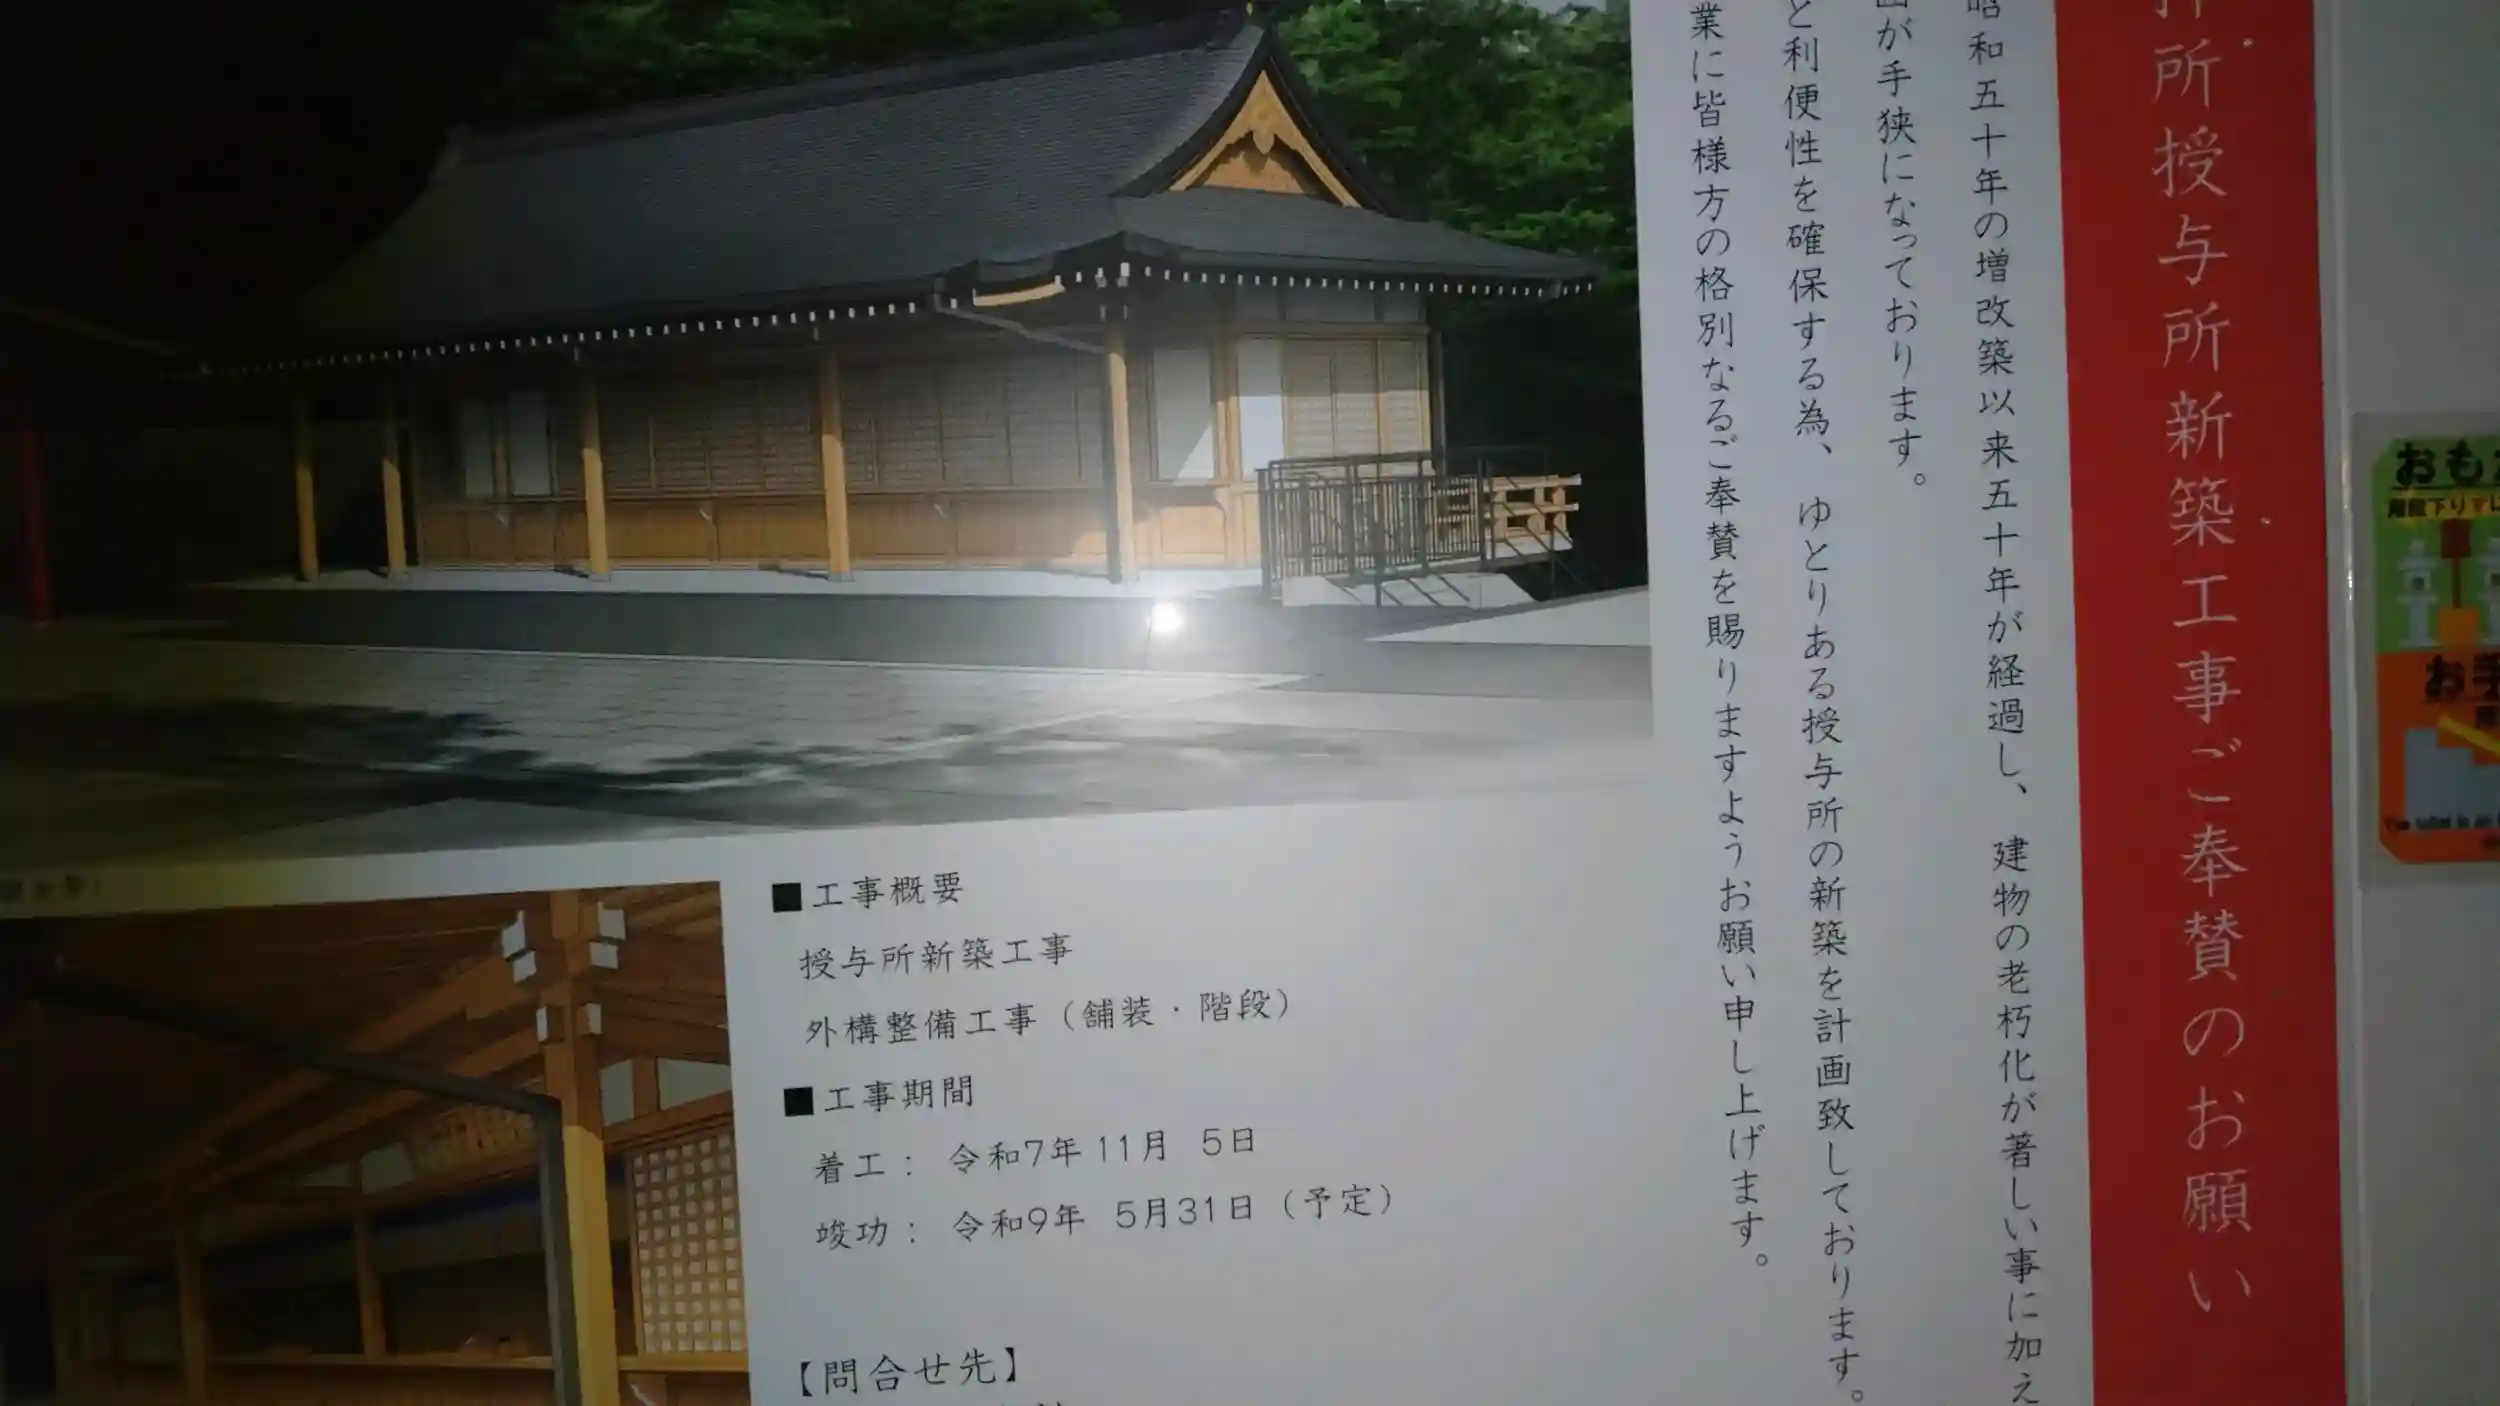 所授与所新築工事ご奉賛のお願い
昭和五十年の増改築以来五十年が経過し、建物の老朽化が著しい事に加え
が手狭になっております。
と利便性を確保する為、ゆとりある授与所の新築を計画致しております。
業に皆様方の格別なるご奉賛を賜りますようお願い申し上げます。
■工事概要
授与所新築工事
外構整備工事（舗装・階段）
■工事期間
着工： 令和7年11月 5日
竣功： 令和9年 5月31日（予定）
【問合せ先】
おも
階段下り
お手